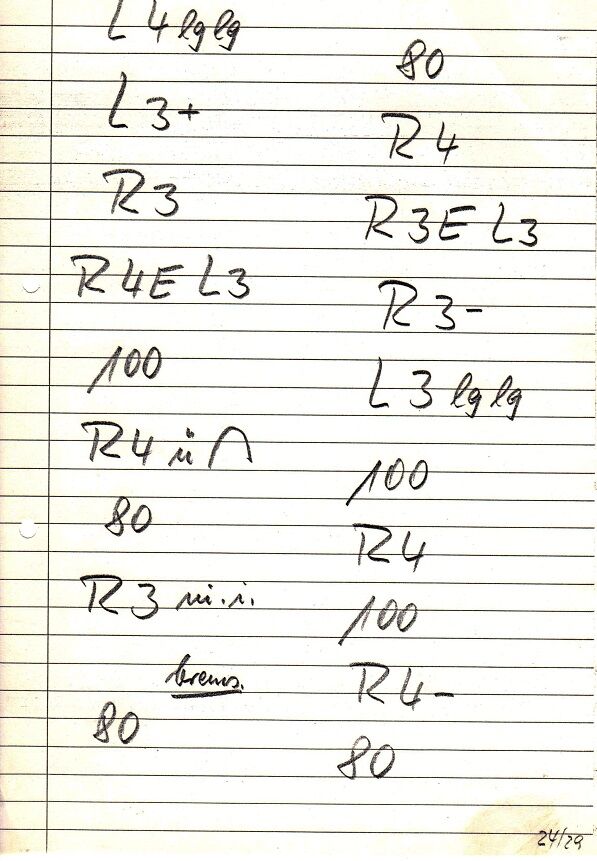 L 4 lg lg
L 3+
R 3
R 4E L3
100
R4 ü ∩
80
R3 ni. i.
brems.
80
80
R 4
R 3E L3
R 3-
L 3 lg lg
100
R4
100
R 4-
80
24/29